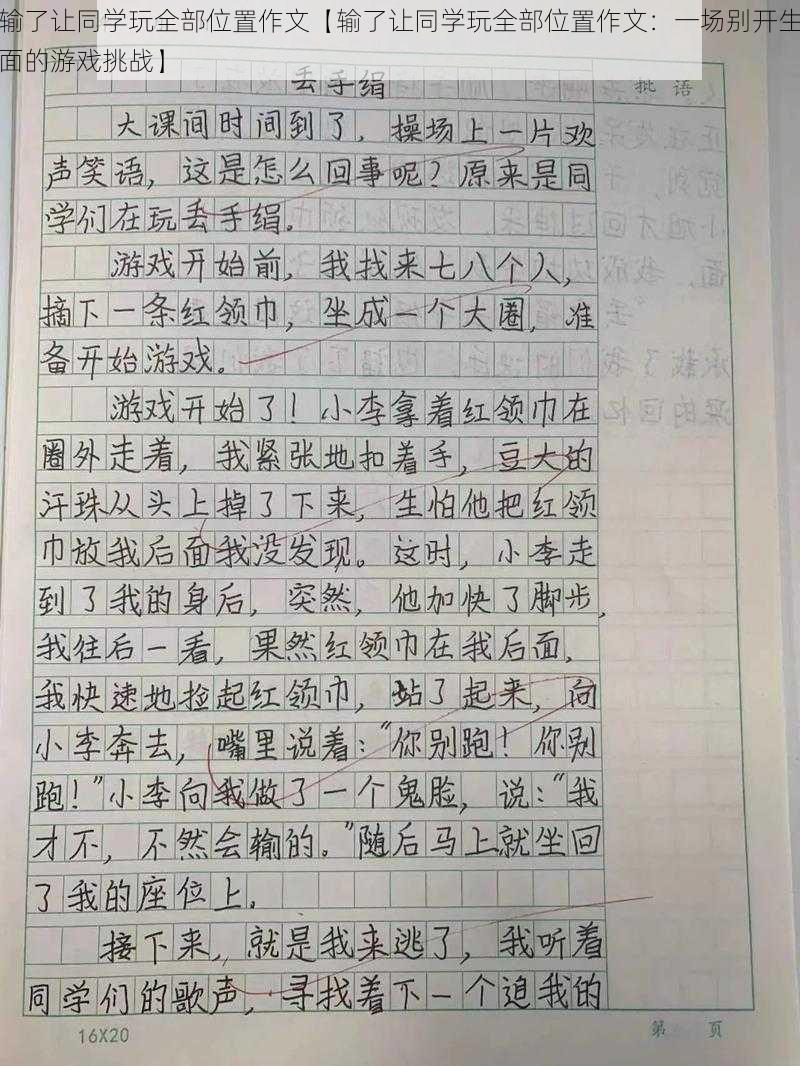 输了让同学玩全部位置作文【输了让同学玩全部位置作文：一场别开生
面的游戏挑战】
丢手绢
批 语
大课间时间到了，操场上一片欢
声笑语，这是怎么回事呢？原来是同
学们在玩丢手绢。
游戏开始前，我找来七八个人，
摘下一条红领巾，坐成一个大圈，准
备开始游戏。
游戏开始了！小李拿着红领巾在
圈外走着，我紧张地扣着手，豆大的
汗珠从头上掉了下来，生怕他把红领
巾放我后面我没发现。这时，小李走
到了我的身后，突然，他加快了脚步，
我往后一看，果然红领巾在我后面，
我快速地捡起红领巾，站了起来，向
小李奔去，嘴里说着：“你别跑！你别
跑！”小李向我做了一个鬼脸，说：“我
才不，不然会输的。”随后马上就坐回
了我的座位上。
接下来，就是我来逃了，我听着
同学们的歌声，寻找着下一个追我的
16X20
第 页